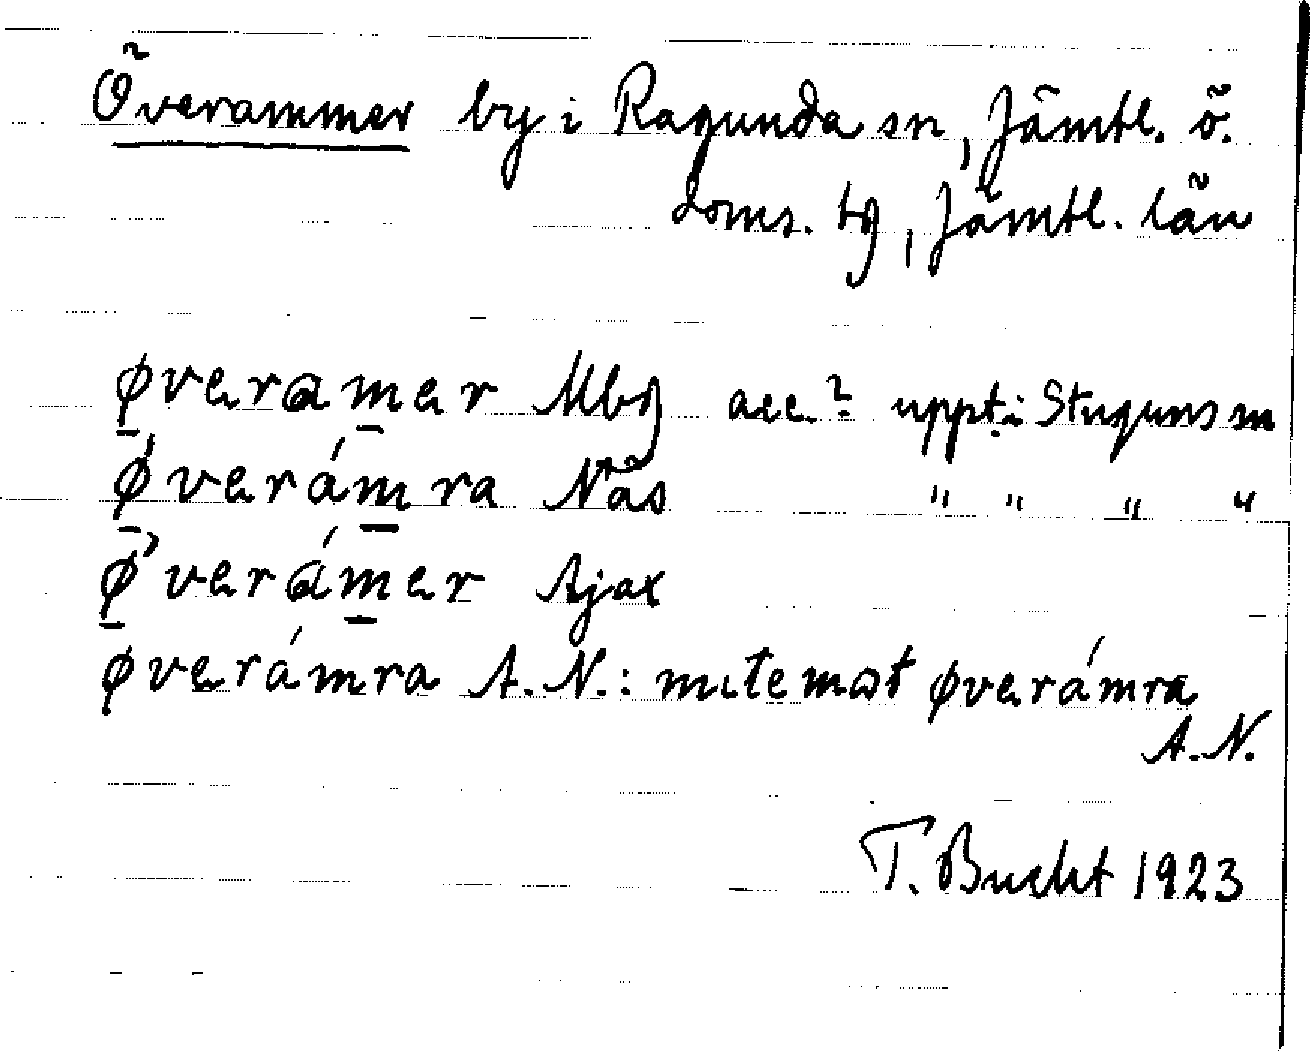 Överammer by i Ragunda sn, Jämtl. ö.
doms. tg, Jämtl. län
øverɑm̲er Mbg acc.? uppt. i Stuguns sn
ǿverám̲ra Näs " " " "
ø̀verɑ́m̲er Ajax
øverámra A.N.: mıtemot øverámra
A.N.
T. Bucht 1923